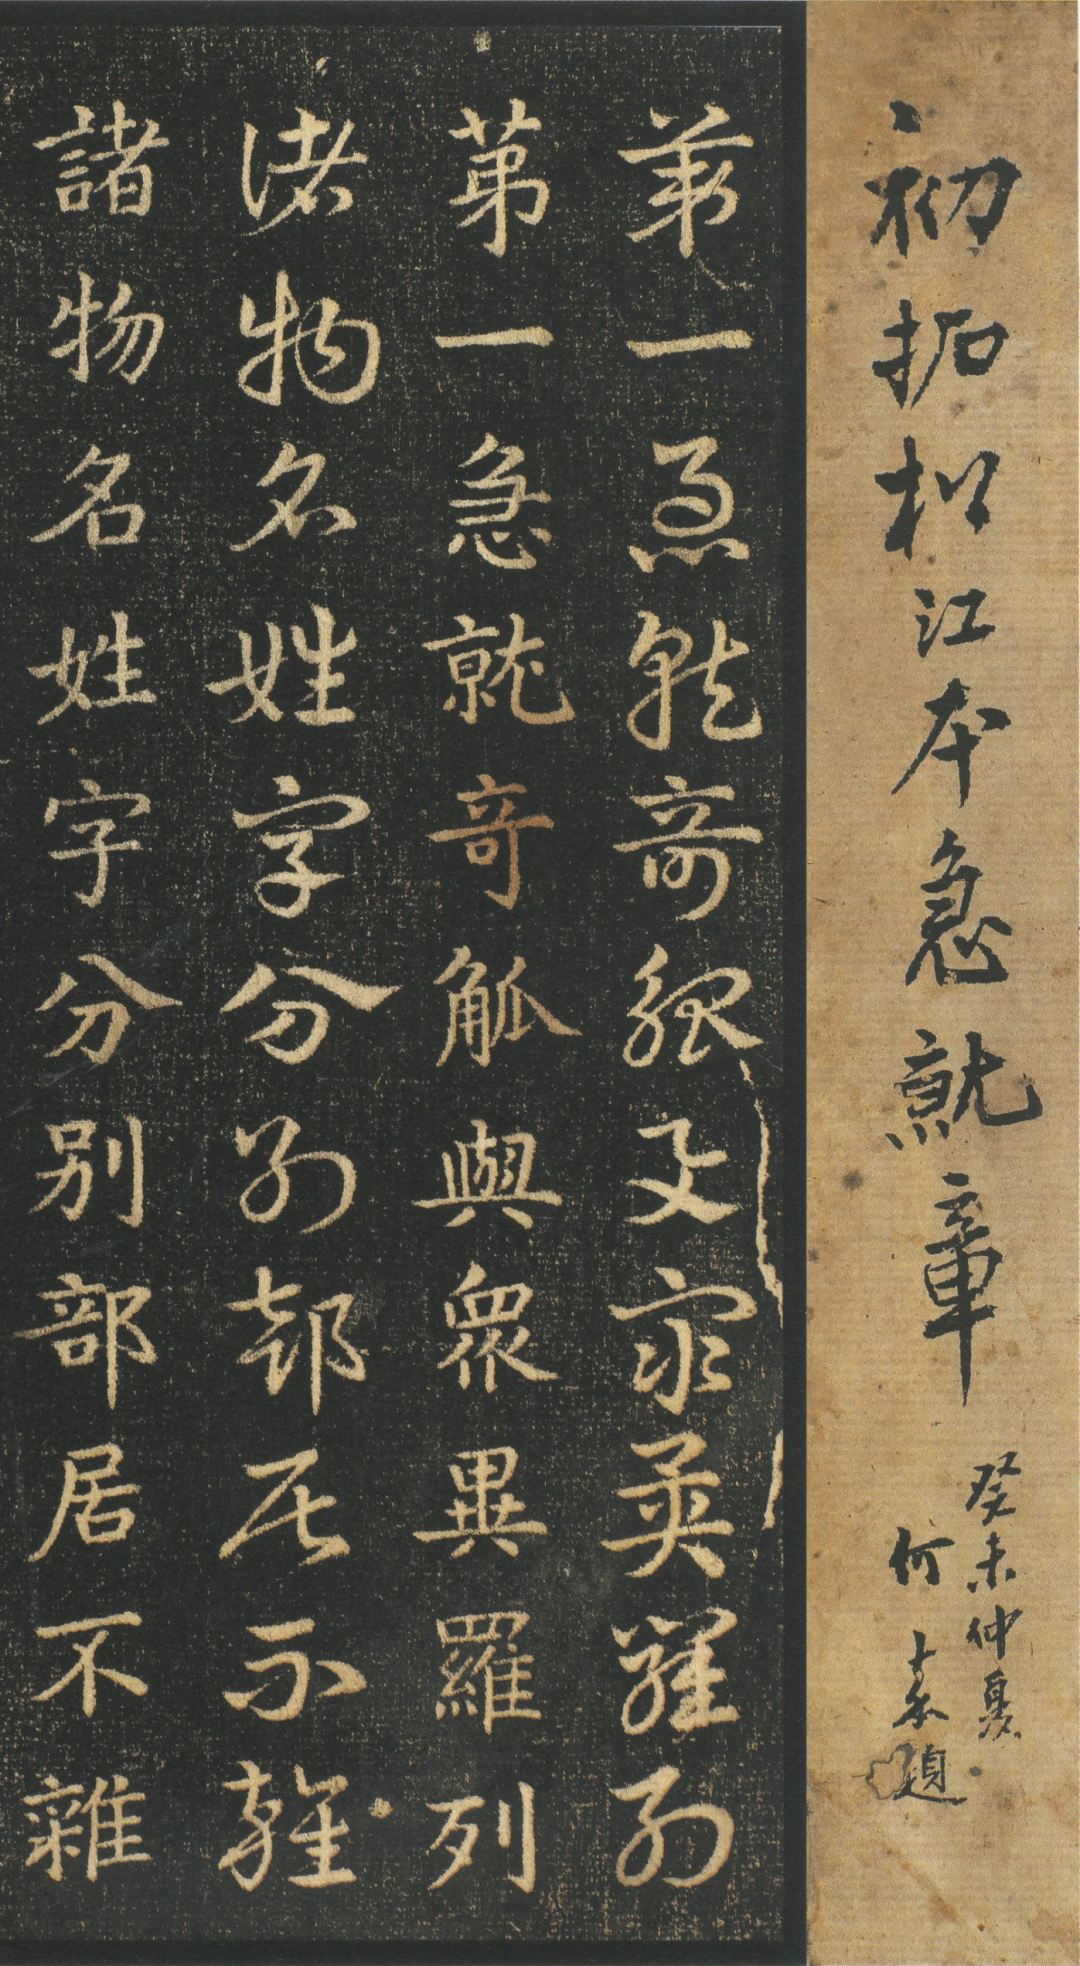 初拓松江本急就章
癸未仲夏
何士 題
第一急就奇觚與眾異羅列
第一急就奇觚與眾異羅列
諸物名姓字分別部居不雜
諸物名姓字分別部居不雜